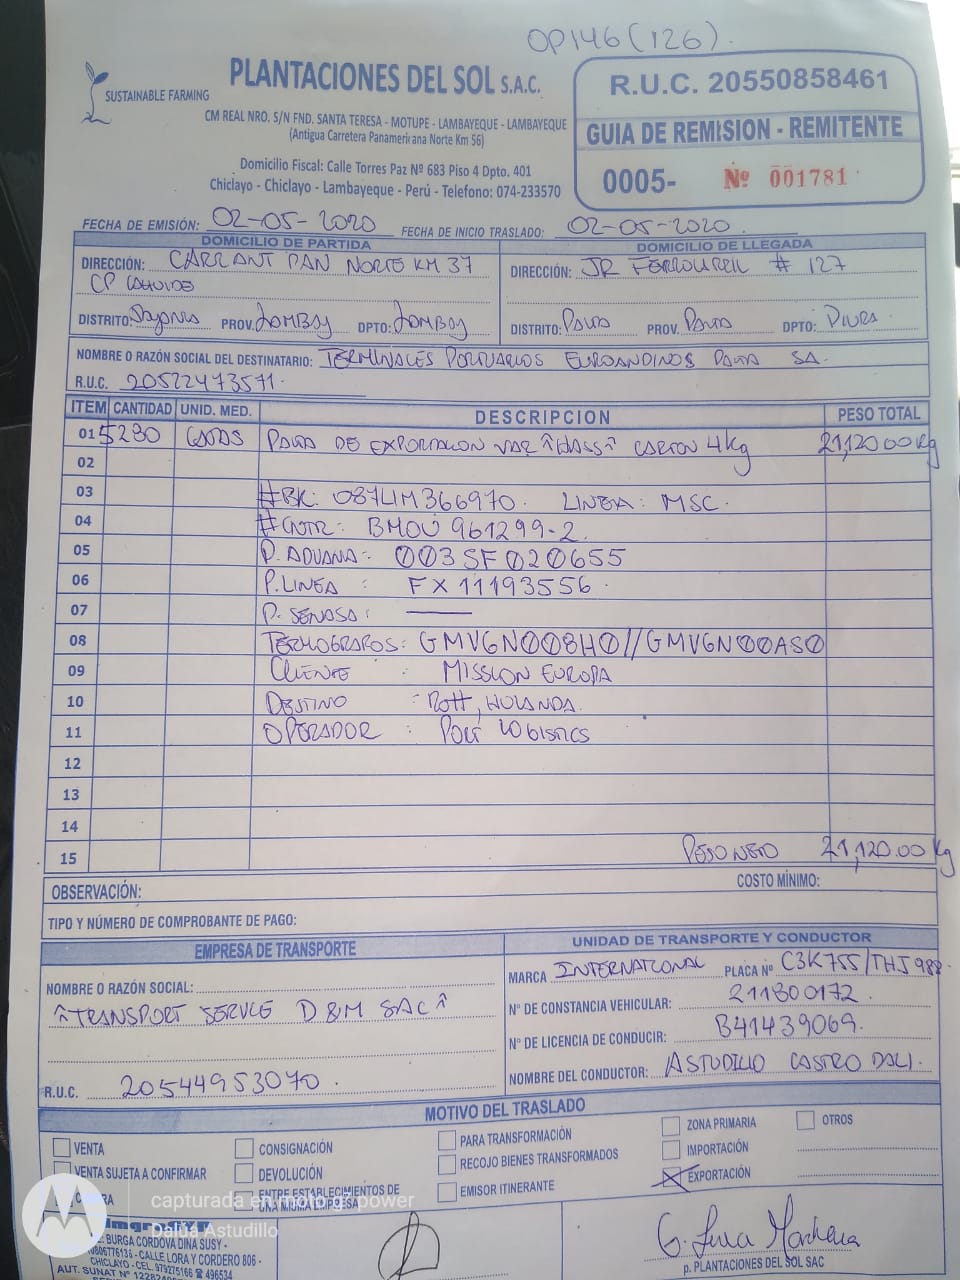 OP146(126).
SUSTAINABLE FARMING
PLANTACIONES DEL SOL S.A.C.
CM REAL NRO. S/N FND. SANTA TERESA - MOTUPE - LAMBAYEQUE - LAMBAYEQUE
(Antigua Carretera Panamericana Norte Km 56)
Domicilio Fiscal: Calle Torres Paz Nº 683 Piso 4 Dpto. 401
Chiclayo - Chiclayo - Lambayeque - Perú - Telefono: 074-233570
R.U.C. 20550858461
GUIA DE REMISION - REMITENTE
0005- Nº 001781
FECHA DE EMISIÓN: 02-05-2020 FECHA DE INICIO TRASLADO: 02-05-2020.
DOMICILIO DE PARTIDA
DIRECCIÓN: CARRANT PAN NORTE KM 37
CP
DISTRITO: PROV. DPTO:
DOMICILIO DE LLEGADA
DIRECCIÓN: JR # 127
DISTRITO: Paita PROV. Paita DPTO: Piura
NOMBRE O RAZÓN SOCIAL DEL DESTINATARIO: TERMINALES PORTUARIOS EUROANDINOS PAITA SA.
R.U.C. 20522473571.
ITEM CANTIDAD UNID. MED. DESCRIPCION PESO TOTAL
01 5280 CAJAS PALTA DE EXPORTACION VAR "HASS" CARTON 4kg 21,120.00 Kg
02
03 #BK: 087LIM366970. LINEA: MSC.
04 #CNTR: BMOU 961299-2.
05 P. ADUANA: 003SF020655
06 P. LINEA : FX11193556.
07 P. SENASA:
08 TERMOGRAFOS: GMVGN008H0//GMVGN00AS0
09 CLIENTE : MISSION EUROPA
10 DESTINO : ROTT, HOLANDA.
11 OPERADOR : PORT LOGISTICS
12
13
14
15 PESO NETO 21,120.00 Kg
OBSERVACIÓN: COSTO MÍNIMO:
TIPO Y NÚMERO DE COMPROBANTE DE PAGO:
EMPRESA DE TRANSPORTE
NOMBRE O RAZÓN SOCIAL:
"TRANSPORT SERVICE D&M SAC"
R.U.C. 20544953070.
UNIDAD DE TRANSPORTE Y CONDUCTOR
MARCA INTERNATIONAL PLACA Nº C3K755/THJ988.
N° DE CONSTANCIA VEHICULAR: 211800172.
N° DE LICENCIA DE CONDUCIR: B41439069.
NOMBRE DEL CONDUCTOR: ASTUDILLO CASTRO DALI.
MOTIVO DEL TRASLADO
VENTA CONSIGNACIÓN PARA TRANSFORMACIÓN ZONA PRIMARIA OTROS
VENTA SUJETA A CONFIRMAR DEVOLUCIÓN RECOJO BIENES TRANSFORMADOS IMPORTACIÓN
ENTRE ESTABLECIMIENTOS DE UNA MISMA EMPRESA EMISOR ITINERANTE EXPORTACIÓN
capturada en moto g power
Dalua Astudillo
BURGA CORDOVA DINA SUSY -
10806776136 - CALLE LORA Y CORDERO 806 -
CHICLAYO - CEL. 979275166 ☎ 496534
AUT. SUNAT Nº
p. PLANTACIONES DEL SOL SAC